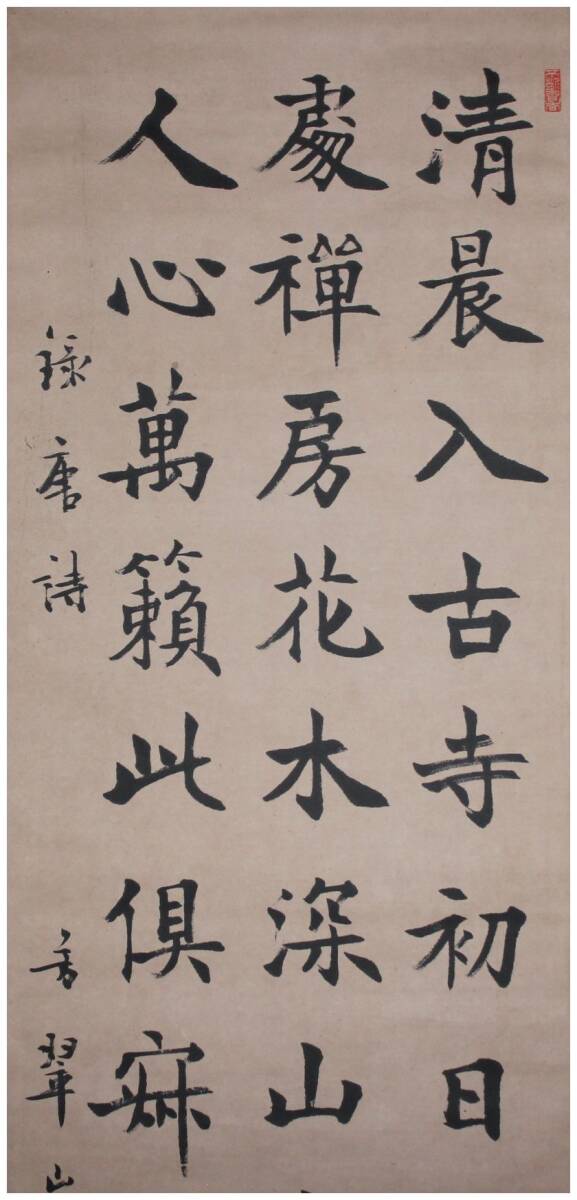 清晨入古寺初日
處禪房花水深山
人心萬籟此俱寂
錄唐詩 香翠山